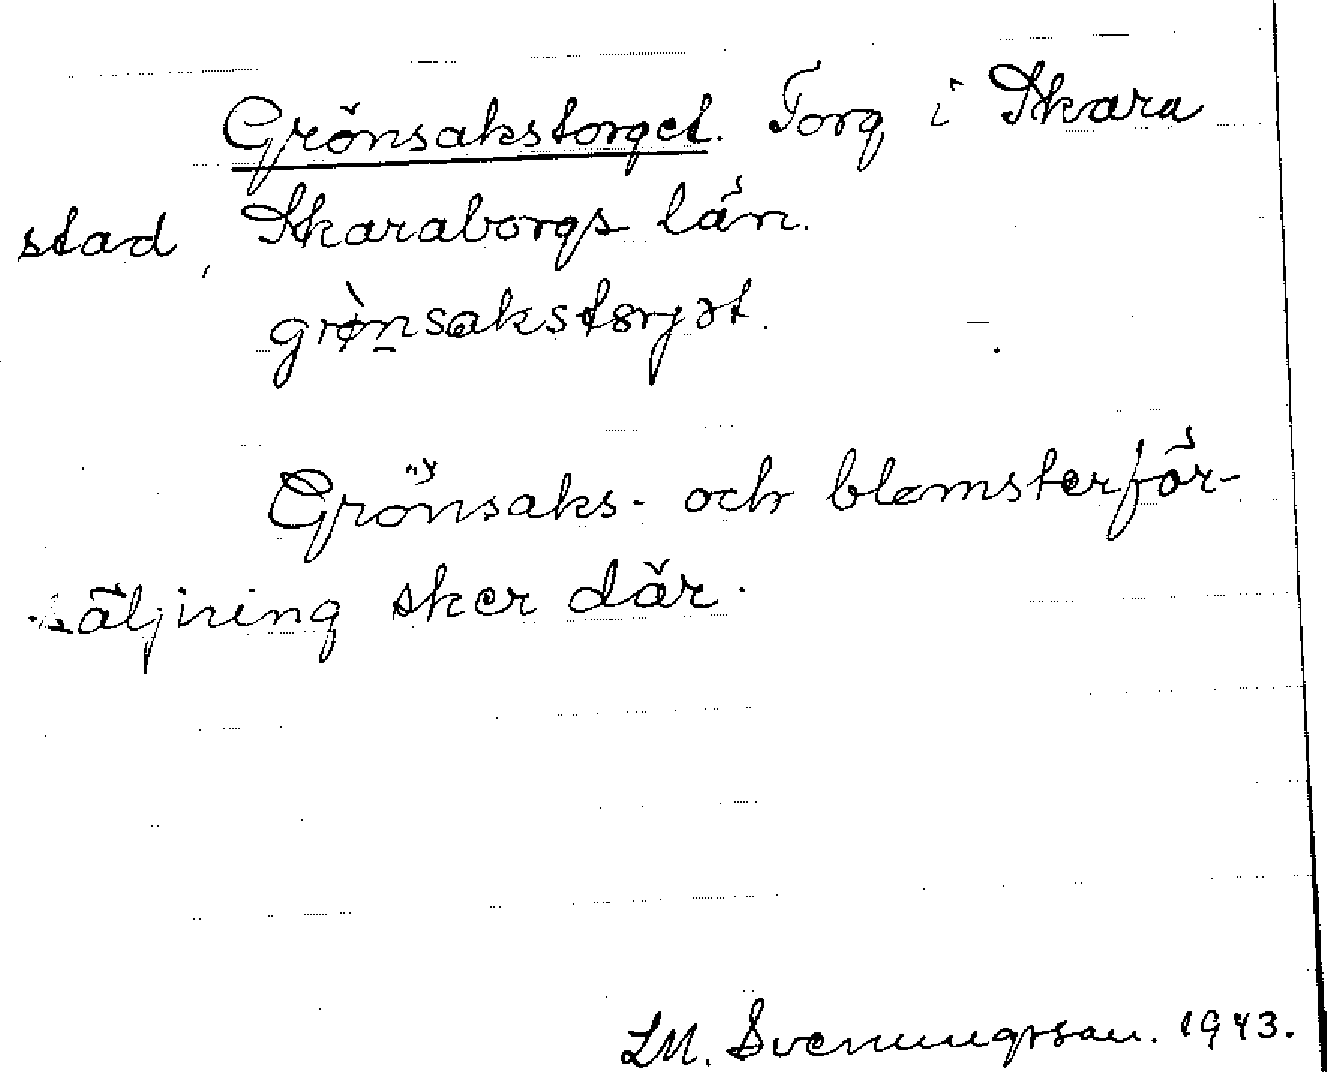 Grönsakstorget. Torg i Skara
stad, Skaraborgs län.
grǿnsakstorjət.
Grönsaks- och blomsterför-
säljning sker där.
LM. Svenungsson. 1943.